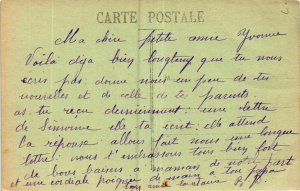 CARTE POSTALE
Ma chère petite amie Yvonne
Voilà déja bien longtemp que tu nous
écris pas donne nous un peu de tes
nouvelles et de celle de tes parents.
as tu reçu dernièrement une lettre
de Simonne elle ta écrit; elle attend
la réponse allons fait nous une longue
lettre; nous t'embrassons tous bien fort
de bons baisers à maman de notre part
et une cordiale poignée de main à ton papa